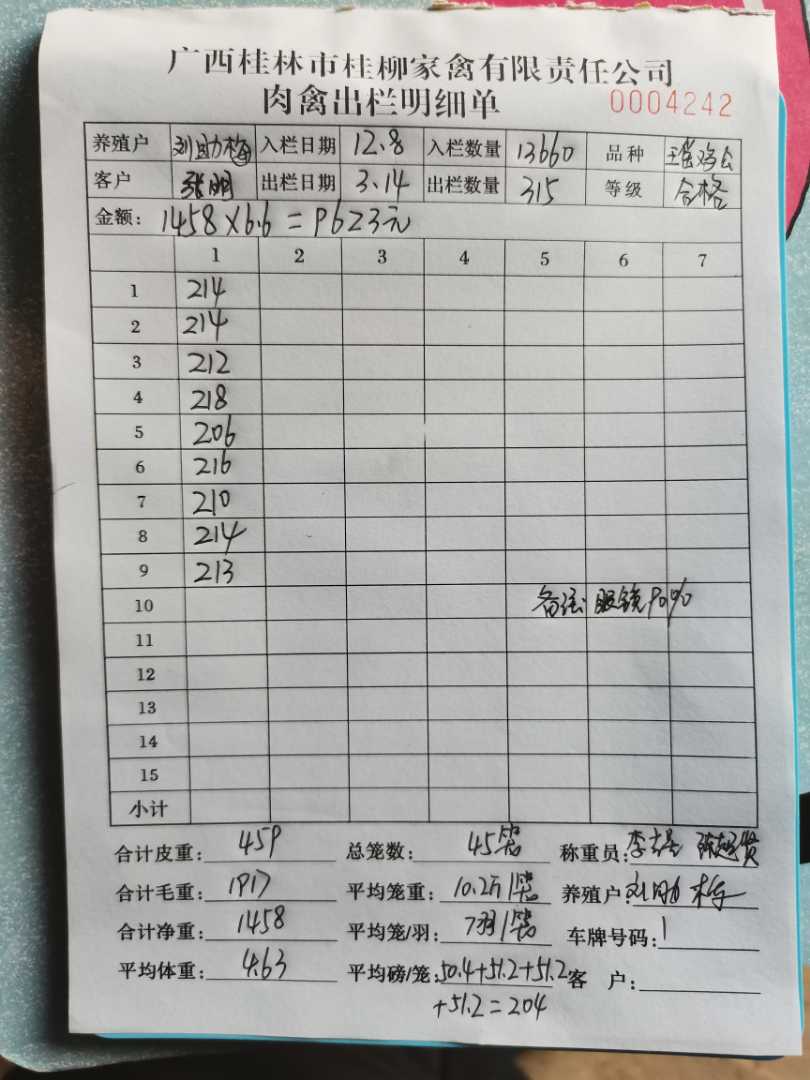 广西桂林市桂柳家禽有限责任公司
肉禽出栏明细单 0004242
养殖户 刘助梅 入栏日期 12.8 入栏数量 13660 品种
客户 张明 出栏日期 3.14 出栏数量 315 等级 合格
金额: 1458×6.6=9623元
1 2 3 4 5 6 7
1 214
2 214
3 212
4 218
5 206
6 216
7 210
8 214
9 213
10 备注: 眼镜90%
11
12
13
14
15
小计
合计皮重: 459 总笼数: 45笼 称重员:
合计毛重: 1917 平均笼重: 10.2斤/笼 养殖户: 刘助梅
合计净重: 1458 平均笼/羽: 7羽/笼 车牌号码: 1
平均体重: 4.63 平均磅/笼: 50.4+51.2+51.2 客 户:
+51.2=204